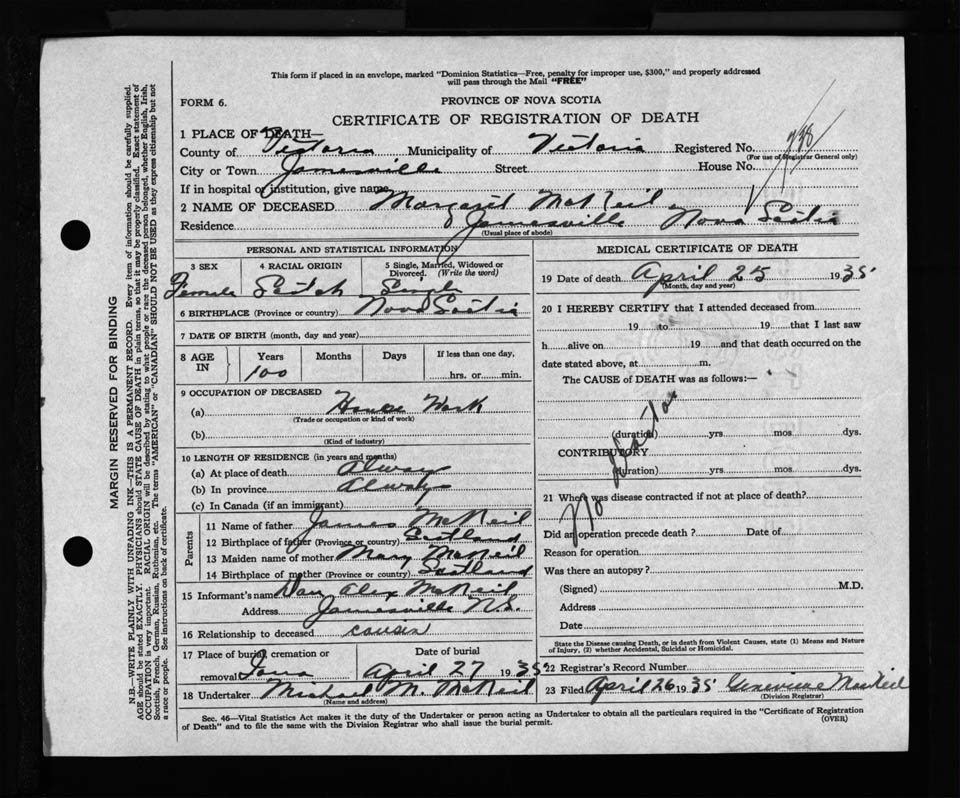 This form if placed in an envelope, marked "Dominion Statistics—Free, penalty for improper use, $300," and properly addressed
will pass through the Mail "FREE"
FORM 6.
PROVINCE OF NOVA SCOTIA
CERTIFICATE OF REGISTRATION OF DEATH
1 PLACE OF DEATH—
County of Victoria Municipality of Victoria Registered No.
(For use of Registrar General only)
City or Town Jamesville Street House No.
If in hospital or institution, give name
2 NAME OF DECEASED Margaret McNeil
Residence Jamesville Nova Scotia
(Usual place of abode)
PERSONAL AND STATISTICAL INFORMATION
3 SEX 4 RACIAL ORIGIN 5 Single, Married, Widowed or Divorced. (Write the word)
Female Scotch Single
6 BIRTHPLACE (Province or country) Nova Scotia
7 DATE OF BIRTH (month, day and year)
8 AGE IN Years Months Days If less than one day,
100 hrs. or min.
9 OCCUPATION OF DECEASED
(a) House Work
(Trade or occupation or kind of work)
(b)
(Kind of industry)
10 LENGTH OF RESIDENCE (in years and months)
(a) At place of death Always
(b) In province Always
(c) In Canada (if an immigrant)
Parents
11 Name of father James McNeil
12 Birthplace of father (Province or country) Scotland
13 Maiden name of mother Mary McNeil
14 Birthplace of mother (Province or country) Scotland
15 Informant's name Dan Alex McNeil
Address Jamesville N.S.
16 Relationship to deceased cousin
17 Place of burial, cremation or removal Iona Date of burial April 27 1935
18 Undertaker Michael M. McNeil
(Name and address)
MEDICAL CERTIFICATE OF DEATH
19 Date of death April 25 1935
(Month, day and year)
20 I HEREBY CERTIFY that I attended deceased from
19 to 19 that I last saw
h alive on 19 and that death occurred on the
date stated above, at m.
The CAUSE of DEATH was as follows:—
No Doctor
(duration) yrs. mos. dys.
CONTRIBUTORY
(duration) yrs. mos. dys.
21 Where was disease contracted if not at place of death?
Did an operation precede death? Date of
Reason for operation
Was there an autopsy?
(Signed) M.D.
Address
Date
State the Disease causing Death, or in death from Violent Causes, state (1) Means and Nature
of Injury, (2) whether Accidental, Suicidal or Homicidal.
22 Registrar's Record Number
23 Filed April 26 1935 Genevieve MacNeil
(Division Registrar)
Sec. 46—Vital Statistics Act makes it the duty of the Undertaker or person acting as Undertaker to obtain all the particulars required in the "Certificate of Registration
of Death" and to file the same with the Division Registrar who shall issue the burial permit.
(OVER)
MARGIN RESERVED FOR BINDING
N.B.—WRITE PLAINLY WITH UNFADING INK—THIS IS A PERMANENT RECORD. Every item of information should be carefully supplied.
AGE should be stated EXACTLY. PHYSICIANS should STATE CAUSE OF DEATH in plain terms, so that it may be properly classified. Exact statement of
OCCUPATION is very important. RACIAL ORIGIN will be described by stating to what people or race the deceased person belonged, whether English, Irish,
Scottish, French, German, Russian, Ruthenian, etc. The terms "AMERICAN" or "CANADIAN" SHOULD NOT BE USED as they express citizenship but not
a race or people. See instructions on back of certificate.